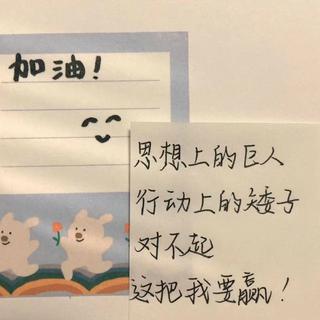 加油!
思想上的巨人
行动上的矮子
对不起
这把我要赢!